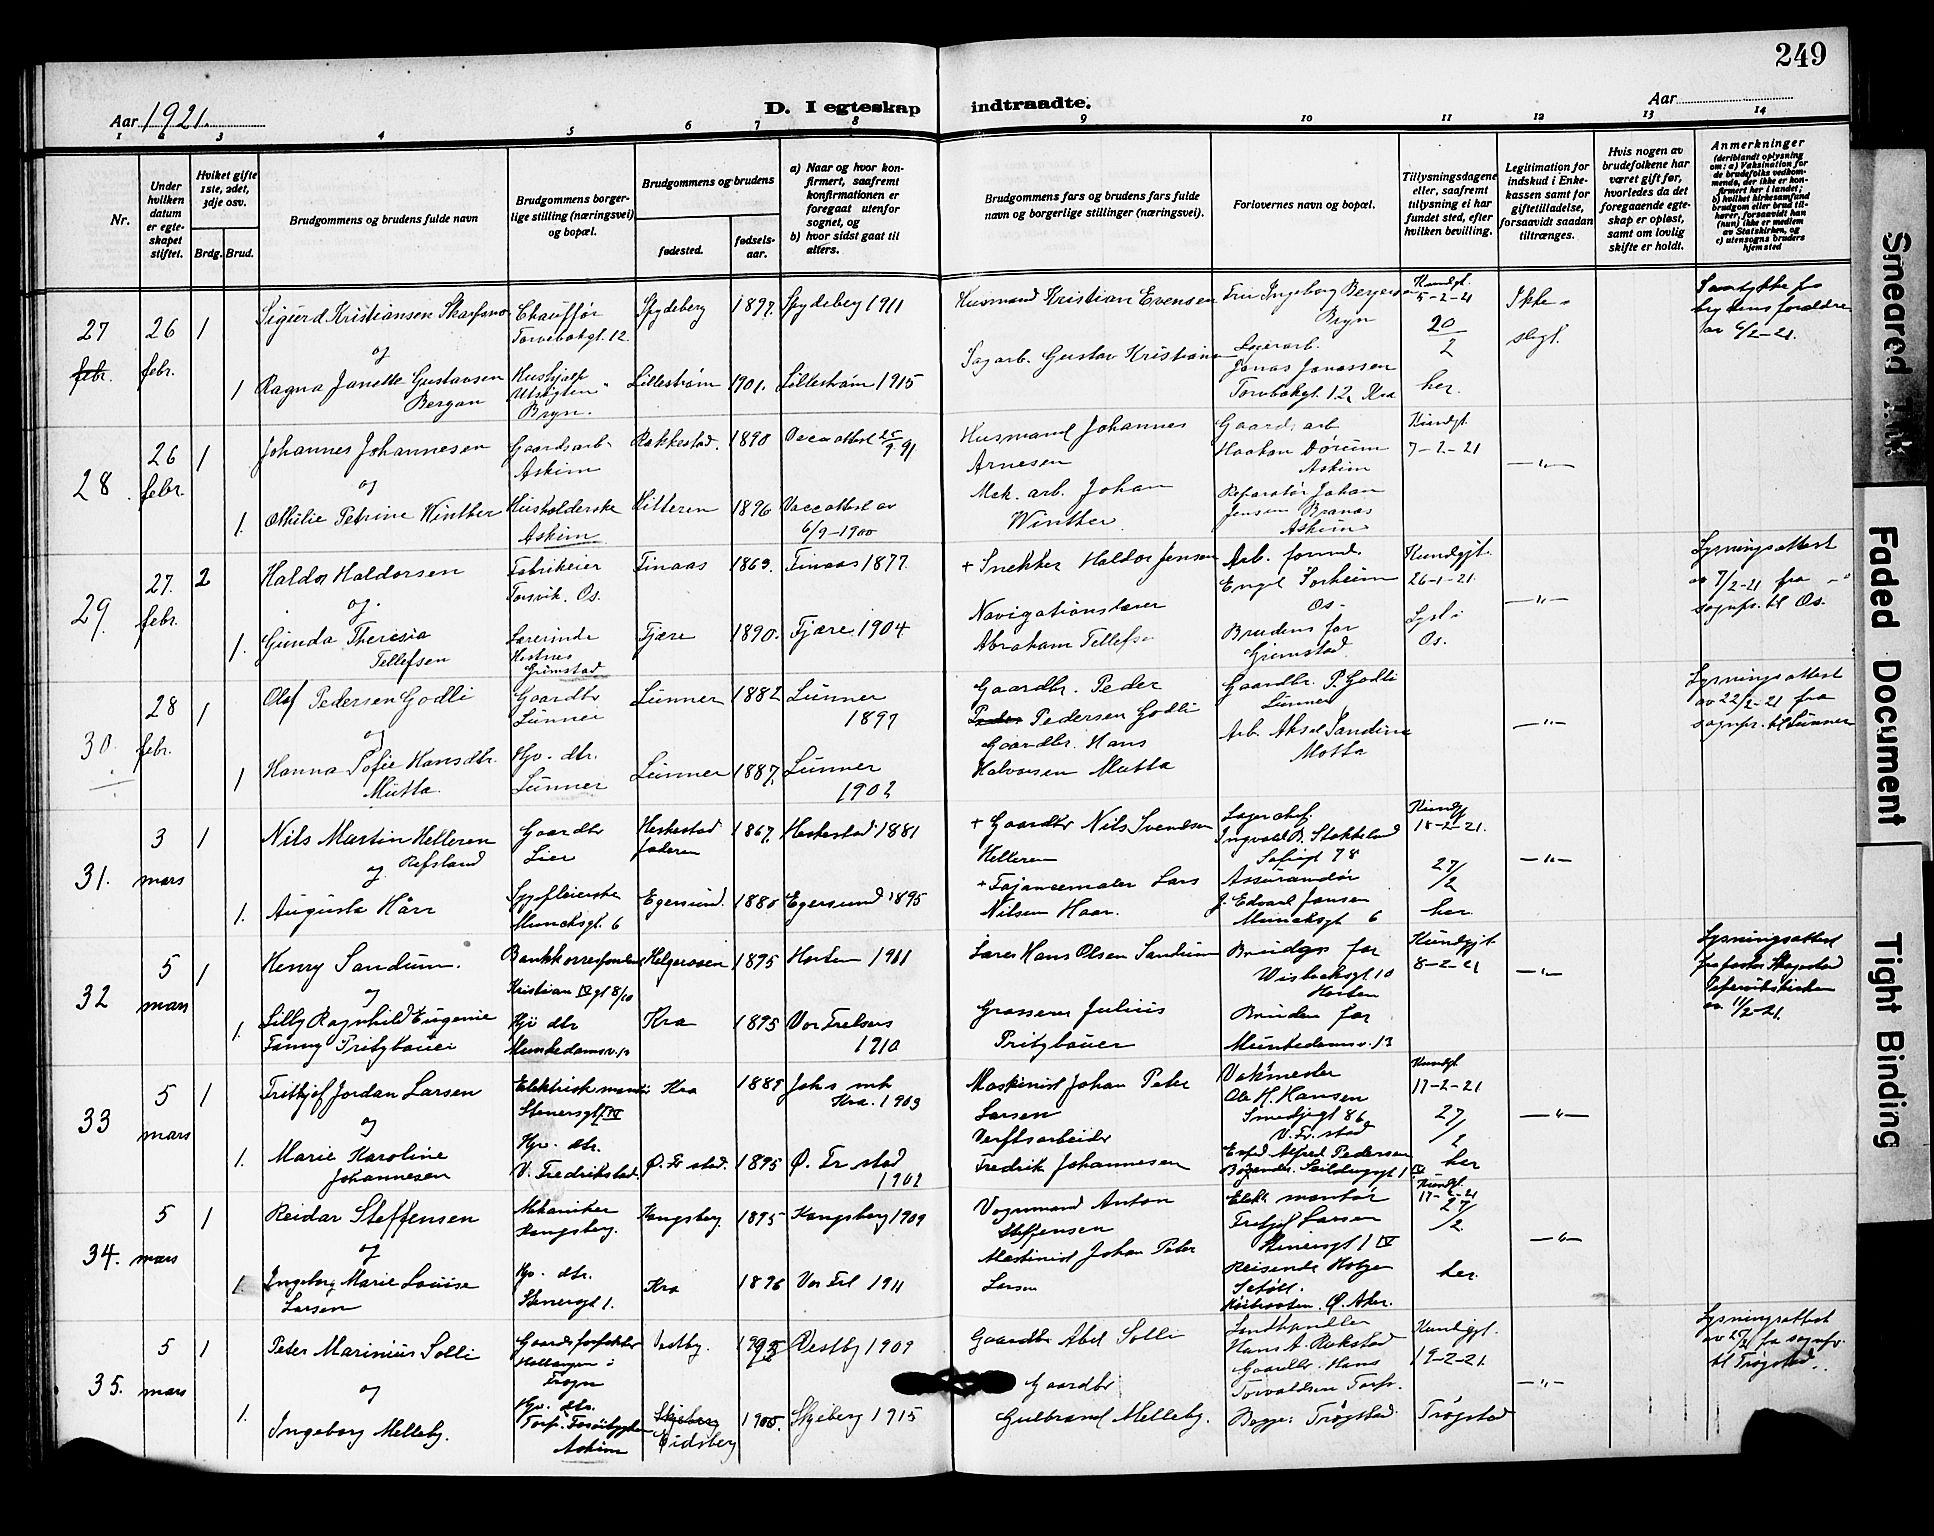 249
Aar 1921.
D. I egteskap indtraadte.
Aar
1 2 3 4 5 6 7 8 9 10 11 12 13 14
Nr.
Under hvilken datum er egteskapet stiftet.
Hviket gifte 1ste, 2det, 3dje osv.
Brdg. Brud.
Brudgommens og brudens fulde navn
Brudgommens borgerlige stilling (næringsvei) og bopæl.
Brudgommens og brudens
fødested.
fødselsaar.
a) Naar og hvor konfirmert, saafremt konfirmationen er foregaat utenfor sognet, og
b) hvor sidst gaat til alters.
Brudgommens fars og brudens fars fulde navn og borgerlige stillinger (næringsvei).
Forlovernes navn og bopæl.
Tillysningsdagene eller, saafremt tillysning ei har fundet sted, efter hvilken bevilling.
Legitimation for indskud i Enkekassen samt for giftetilladelse, forsaavidt saadan tiltrænges.
Hvis nogen av brudefolkene har været gift før, hvorledes da det foregaaende egteskap er opløst, samt om lovlig skifte er holdt.
Anmerkninger
(deriblandt oplysning om: a) Vaksination for de brudefolks vedkommende, der ikke er konfirmert her i landet; b) hvilket kirkesamfund brudgom eller brud tilhører, forsaavidt han (hun) ikke er medlem av Statskirken, og c) utensogns bruders hjemsted
27 febr.
26 febr.
1
Sigurd Kristiansen
Chauffør
Spydeberg 1897. Spydeberg 1911
Husmand Kristian Evensen
Fru Ingeborg
Bryn
Kundgt. 5-2-21
20/2
Ikke slegt.
og
1 Ragna Janette Gustavsen
Bergan
Hushjelp
Bryn.
Lillestrøm 1901. Lillestrøm 1915
Sagarb. Gustav Kristians
Lagerarb.
Jonas Jonassen
her.
28.
26 febr.
1
Johannes Johannesen
Gaardsarb.
Askim
Rakkestad. 1890
Husmand Johannes
Arnesen
Gaardsarb
Haakon Dørum
Askim
Kundgt.
7-2-21
—"—
og
1. Othilie Petrine Winther
Husholderske
Askim
Hitteren 1896 Vacc attest av
6/9-1900
Mek. arb. Johan
Winther
Reparatør Johan
Jensen Branas
Askim
29.
27. febr.
2
Haldor Haldorsen
Fabrikeier
Torsvik. Os.
Finaas 1863. Finaas 1877.
+ Snekker Haldor Jensen
Arb. formd.
Os.
Kundgjt.
26-1-21.
—"—
Lysningsattest
av 7/2-21 fra
sognepr. til Os.
og.
1. Gunda Theresia
Tellefsen
Lærerinde
Grimstad
Fjære 1890. Fjære 1904
Navigationslærer
Abraham Tellefsen
Brudens far
Grimstad
Lyst i
Os.
30.
28 febr.
1
Olaf Pedersen Godli
Gaardbr
Lunner
Lunner 1882 Lunner
1897
Gaardbr. Peder
Pedersen Godli
Gaardbr. P. Godli
Lunner
—"—
Lysningsattest
av 22/2-21 fra
sognpr. til Lunner
og
1 Hanna Sofie Hansdtr.
Mutta.
Hjv. dtr.
Lunner
Lunner 1887. Lunner
1902
Gaardbr. Hans
Halvorsen Mutta
Arb. Aksel Sandine
Motta
31.
3 mars
1
Nils Martin Helleren
Refsland
Gaardbr
Lier
Heskestad
Jæderen
1867. Heskestad 1881
+ Gaardbr Nils Svendsen
Helleren
Lagerchef
Ingvald B. Stokkeland
Sofiegt 78
Kundgt
18-2-21.
27/2
her.
—"—
og
1. Augusta Hårr
Sypleierske
Muncksgt. 6
Egersund. 1880 Egersund 1895
+ Fajancemaler Lars
Nilsen Haar.
Assurandør
J. Edvard Jansen
Muncksgt 6
32
5 mars
1
Henry Sandum.
Bankkorrespondent
Kristian IV gt 8/10
Helgeroaen 1895 Horten 1911
Lærer Hans Olsen Sandum
Brudgs far
10
Horten
Kundgjt.
8-2-21
—"—
Lysningsattest
av 11/2-21.
og
1. Lilly Ragnhild Eugenie
Fanny Pritzbauer
Hjv dtr
Munkedamsv. 13
Kra 1895 Vor Frelsers
1910
Grosserer Julius
Pritzbauer
Brudens far
Munkedamsv. 13
33
5 mars
1
Frithjof Jordan Larsen
Elektrisk montør
Stenersgt 1 IV
Kra 1888 Johs mh
Kra. 1903
Maskinist Johan Peter
Larsen
Ole H. Hansen
Smedjegt 86
V. Fr. stad
Kundgt.
17-2-21
27/2
her
—"—
og
1. Marie Karoline
Johannesen
Hjv. dtr.
V. Fredrikstad.
Ø. Fr stad. 1895 Ø. Fr stad
1902
Verftsarbeider
Fredrik Johannesen
Exped. Alfred Pedersen
34.
5 mars
1
Reidar Steffensen
Mekaniker
Kongsberg.
Kongsberg. 1895 Kongsberg 1909
Vognmand Anton
Steffensen
Elekt. montør
Fritjof Larsen
Stenersgt 1 IV
Kundgt.
17-2-21
27/2
her.
—"—
og
1. Ingeborg Marie Louise
Larsen
Hjv. dtr.
Stenersgt 1.
Kra 1896 Vor Frl 1911
Maskinist Johan Peter
Larsen
Reisende Holger
Ø. Aker.
35.
5 mars
1
Peter Marinius Solli
Gaardsforpakter
Frogn
Vestby. Vestby 1909
Gaardbr Abel Solli
Landhandler
Hans A. Rakstad
Gaardbr. Hans
Torvaldsen Torp.
Kundgjt.
19-2-21.
—"—
Lysningsattest
fra sognpr.
til Trøgstad.
og
1. Ingeborg Melleby.
Hjv. dtr.
Askim
Skjeberg
Eidsberg
1900. Skjeberg 1915
Gaardbr
Gulbrand Melleby.
Begge: Trøgstad
Trøgstad
Smeared Ink
Faded Document
Tight Binding